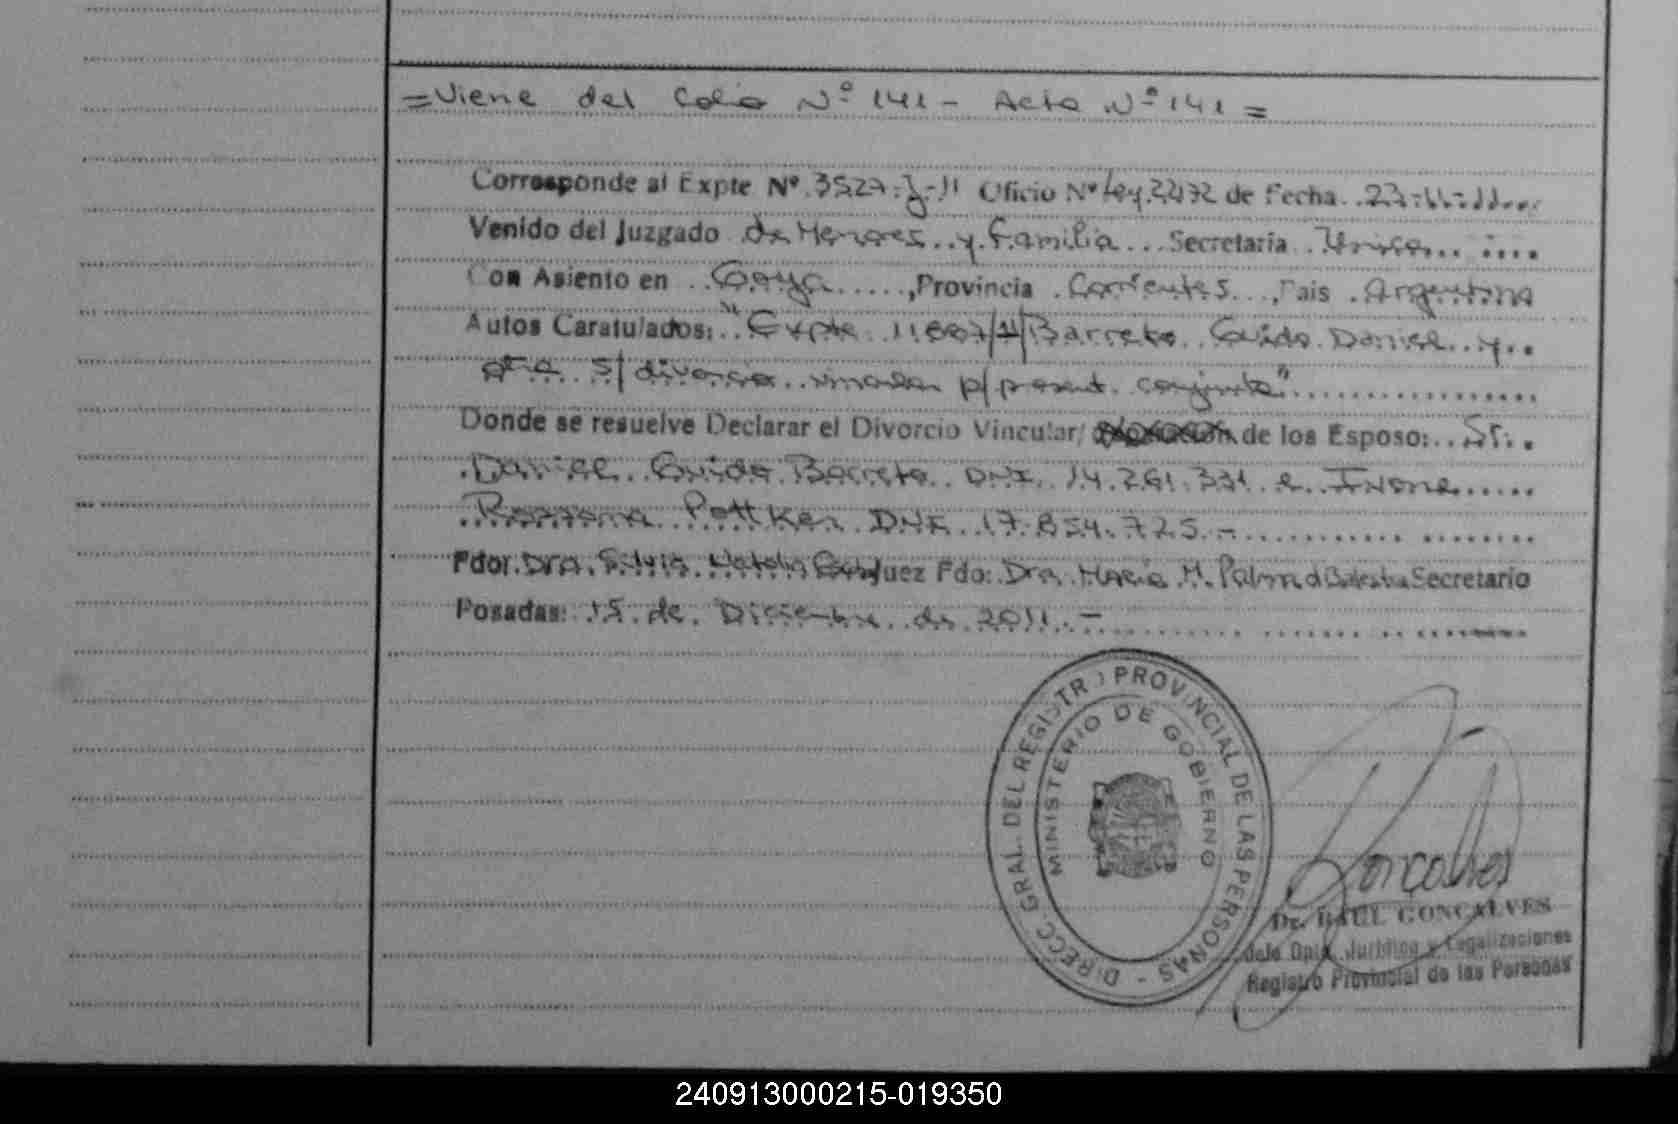 =Viene del Folio Nº 141 - Acta Nº 141=
Corresponde al Expte Nº 3527-J-11 Oficio Nº Ley 22172 de Fecha 23-11-11
Venido del Juzgado de Menores y Familia Secretaría Unica
Con Asiento en Goya, Provincia Corrientes, País Argentina
Autos Caratulados: "Expte 11.667/11/Barreto Guido Daniel y
otra S/divorcio vincular p/present. conjunta"
Donde se resuelve Declarar el Divorcio Vincular/ de los Esposo: Sr.
Daniel Guido Barreto DNI 14.261.331 e Ivone
Rossana Pottker DNI 17.854.725.-
Fdo: Dra. Silvia Natalia Juez Fdo: Dra. Maria M. Palma d Balestra Secretario
Posadas: 15 de Diciembre de 2011.-
DIRECC. GRAL. DEL REGISTRO PROVINCIAL DE LAS PERSONAS -
MINISTERIO DE GOBIERNO
Gonçalves
Dr. RAUL GONCALVES
Jefe Dpto. Jurídico y Legalizaciones
Registro Provincial de las Personas
240913000215-019350